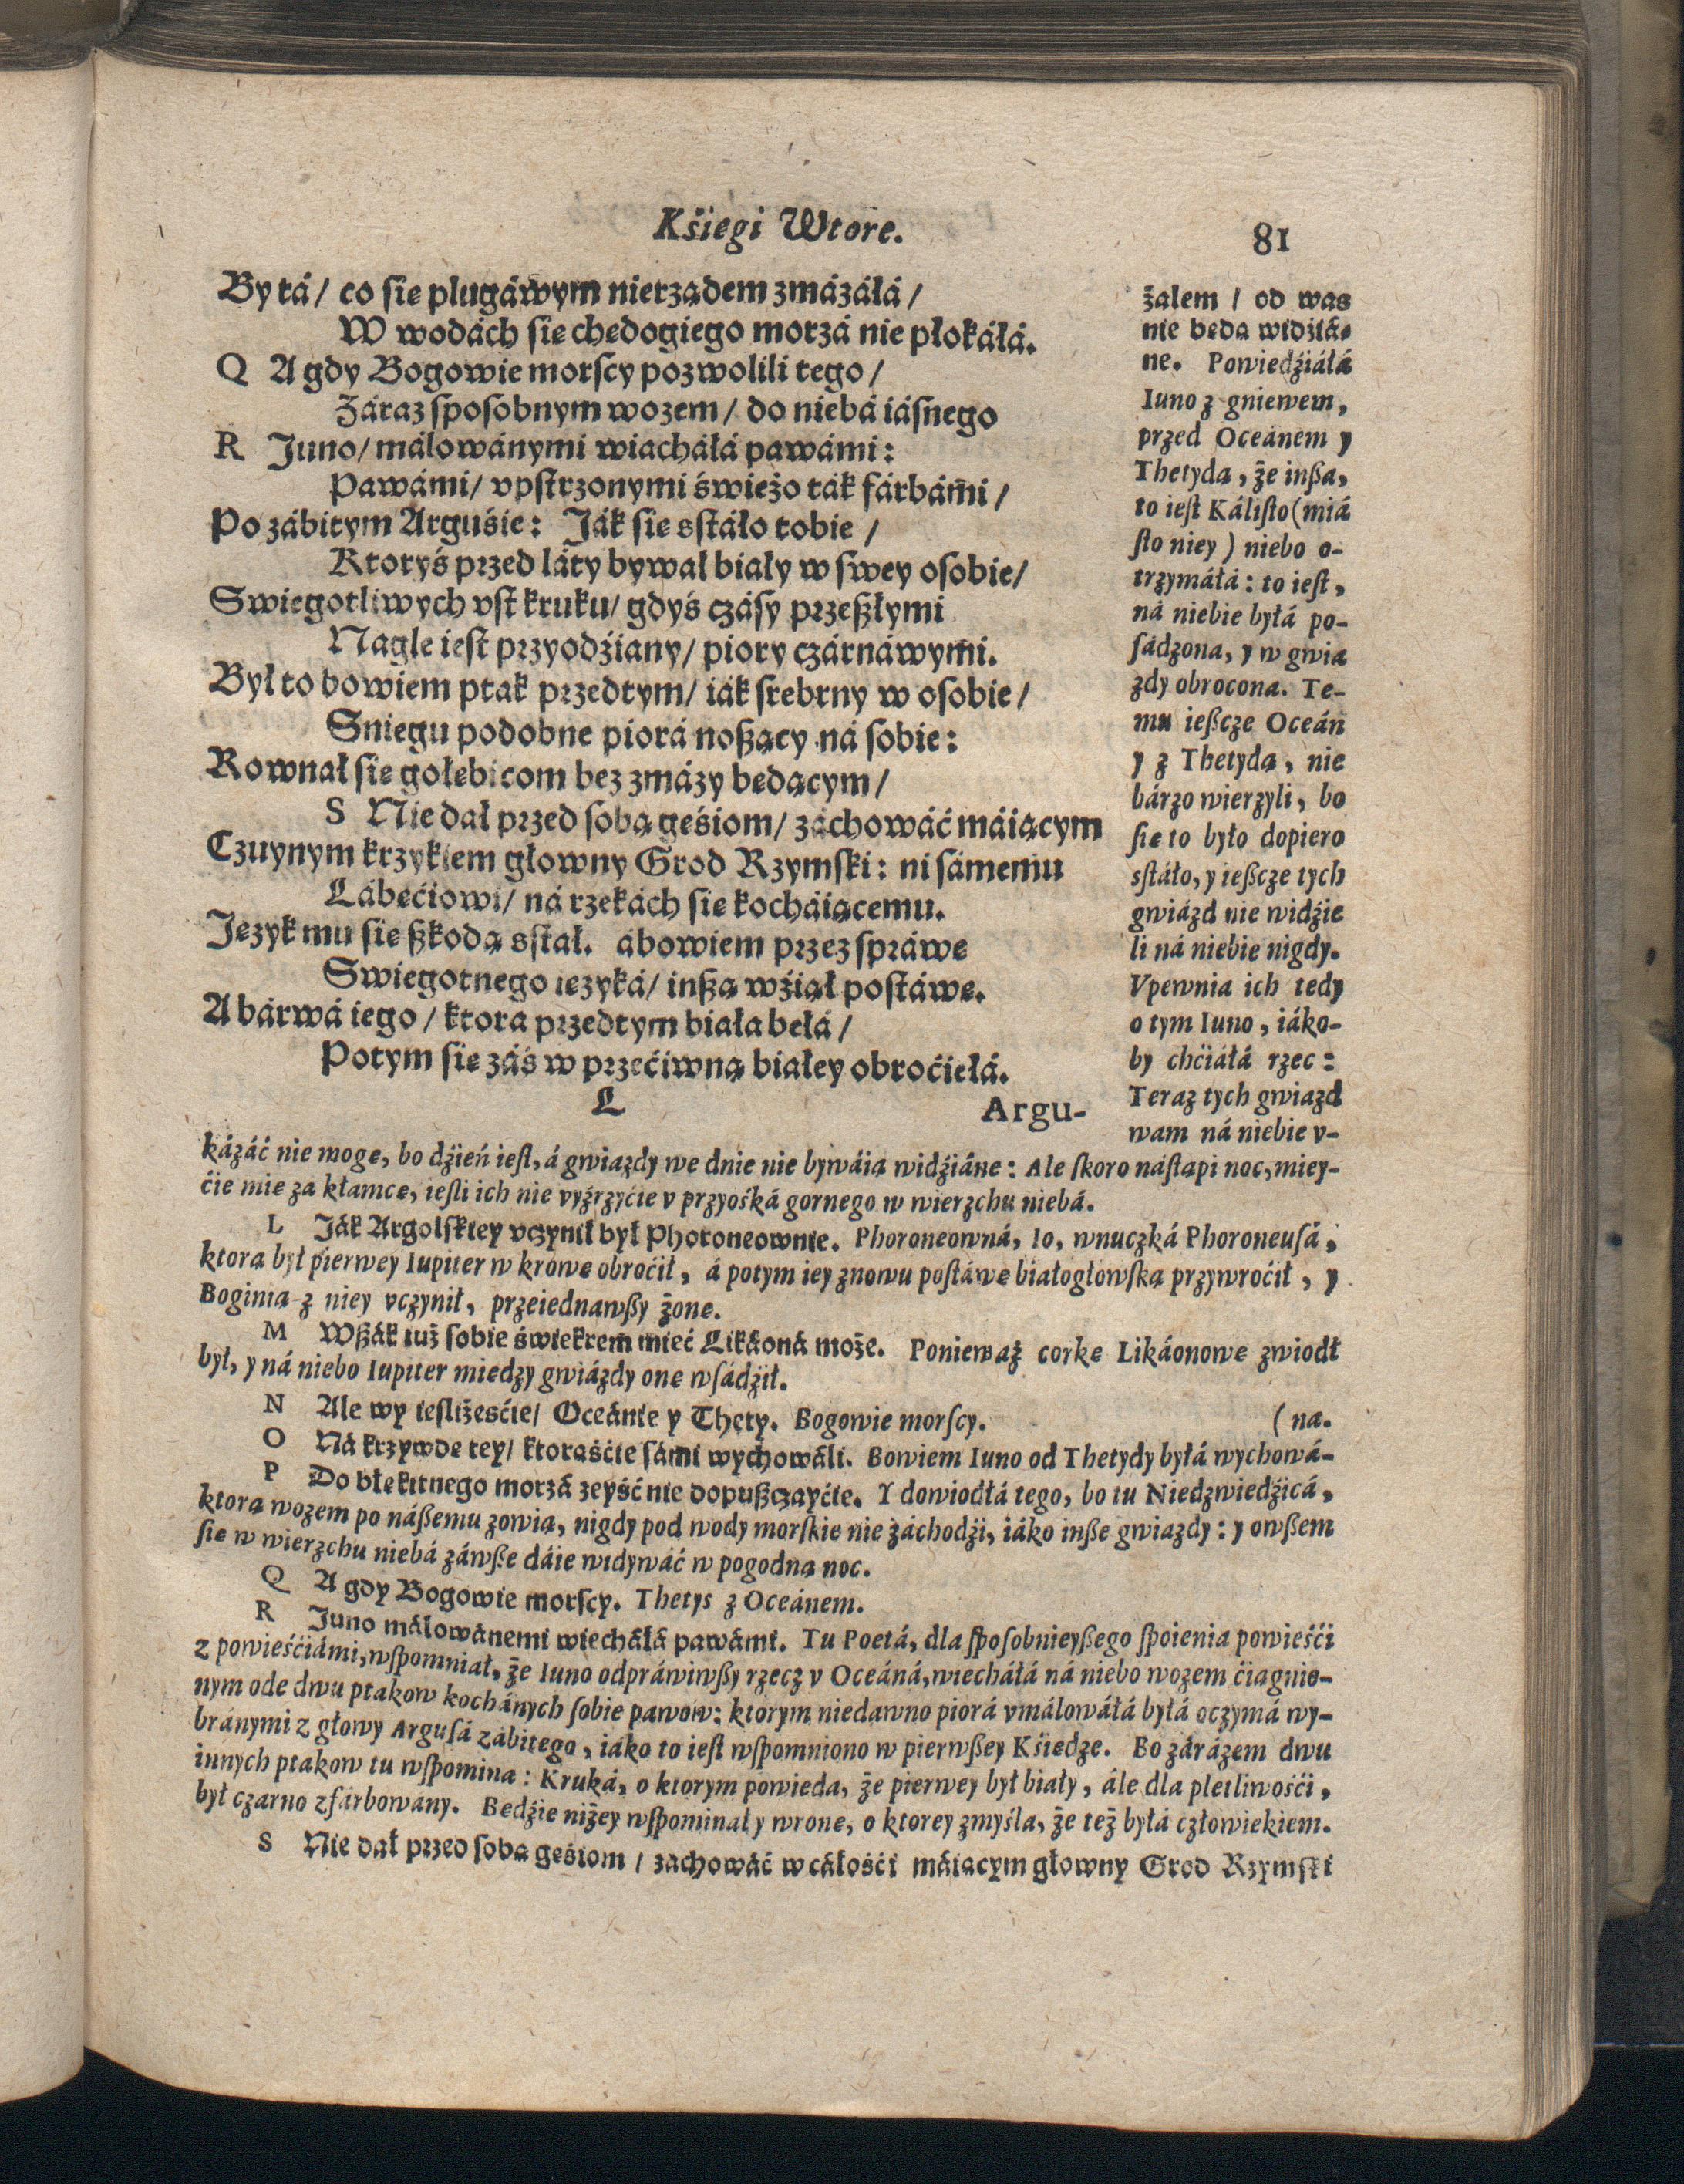 Kśiegi Wtore.
81
By tá / co ſie plugáwym nierządem zmázáłá /
W wodách ſie chedogiego morzá nie płokáłá.
Q A gdy Bogowie morſcy pozwolili tego /
Záraz ſpoſobnym wozem / do niebá iáſnego
R Juno / málowánymi wiácháłá pawámi:
Pawámi / vpſtrzonymi świeżo ták fárbámi /
Po zábitym Arguśie: Ják ſie sſtáło tobie /
Ktoryś przed láty bywał biały w ſwey oſobie /
Swiegotliwych vſt kruku / gdyś czáſy przeßłymi
Nagle ieſt przyodźiany / piory czárnáwymi.
Był to bowiem ptak przedtym / iák ſrebrny w oſobie /
Sniegu podobne piorá noßący ná ſobie:
Rownał ſie gołebicom bez zmázy bedącym /
S Nie dał przed ſobą geśiom / záchowáć máiącym
Czuynym krzykiem głowny Grod Rzymſki: ni ſámemu
Lábećiowi / ná rzekách ſie kocháiącemu.
Jezyk mu ſie ßkodą sſtał. ábowiem przez ſpráwe
Swiegotnego iezyká / inßą wźiął poſtáwe.
A bárwá iego / ktora przedtym biała belá /
Potym ſie záś w przećiwną białey obroćiełá.
L
Argu-
żalem / od was
nie beda widźiá-
ne. Powiedźiáłá
Iuno z gniewem,
przed Oceánem y
Thetyda, że inßa,
to ieſt Káliſto (miá
ſto niey) niebo o-
trzymáłá: to ieſt,
ná niebie byłá po-
ſádzona, y w gwia
zdy obrocona. Te-
mu ießcze Oceán
y z Thetydą, nie
bárzo wierzyli, bo
ſie to było dopiero
sſtáło, y ießcze tych
gwiázd nie widźie
li ná niebie nigdy.
Vpewnia ich tedy
o tym Iuno, iáko-
by chćiáłá rzec:
Teraz tych gwiazd
wam ná niebie v-
kázáć nie moge, bo dźień ieſt, á gwiazdy we dnie nie bywáia widźiáne: Ale ſkoro náſtąpi noc, miey-
ćie mie za kłamce, ieſli ich nie vyźrzyćie v przyośká gornego w wierzchu niebá.
L Ják Argolſkiey vczynił był Phoroneownie. Phoroneowná, Io, wnuczká Phoroneuſá,
ktora był pierwey Iupiter w krowe obroćił, á potym iey znowu poſtáwe białogłowſka przywroćił, y
Boginia z niey vczynił, przeiednawßy żone.
M Wßák iuż ſobie świekrem mieć Likáoná może. Ponieważ corke Likáonowe zwiodł
był, y ná niebo Iupiter miedzy gwiázdy one wſádźił.
N Ale wy ieſliżeśćie / Oceánie y Thety. Bogowie morſcy. (na.
O Ná krzywde tey / ktoraśćie ſámi wychowáli. Bowiem Iuno od Thetydy byłá wychowá-
P Do błekitnego morzá zeyść nie dopußczayćie. Y dowiodłá tego, bo tu Niedzwiedźicá,
ktora wozem po náßemu zowia, nigdy pod wody morſkie nie záchodźi, iáko inße gwiazdy: y owßem
ſie w wierzchu niebá záwße dáie widywáć w pogodna noc.
Q A gdy Bogowie morſcy. Thetys z Oceánem.
R Juno málowánemi wiecháłá pawámi. Tu Poetá, dla ſpoſobnieyßego ſpoienia powieśći
z powieśćiámi, wſpomniał, że Iuno odpráwiwßy rzecz v Oceáná, wiecháłá ná niebo wozem ćiągnio-
nym ode dwu ptakow kochánych ſobie pawow: ktorym niedawno piorá vmálowáłá byłá oczymá wy-
bránymi z głowy Arguſá zábitego, iáko to ieſt wſpomniono w pierwßey Kśiedze. Bo zárázem dwu
innych ptakow tu wſpomina: Kruká, o ktorym powieda, że pierwey był biały, ále dla pletliwośći,
był czarno zfárbowány. Bedźie niżey wſpominał y wrone, o ktorey zmyśla, że też byłá człowiekiem.
S Nie dał przed ſoba geśiom / zachowáć w cáłośći máiacym głowny Grod Rzymſki